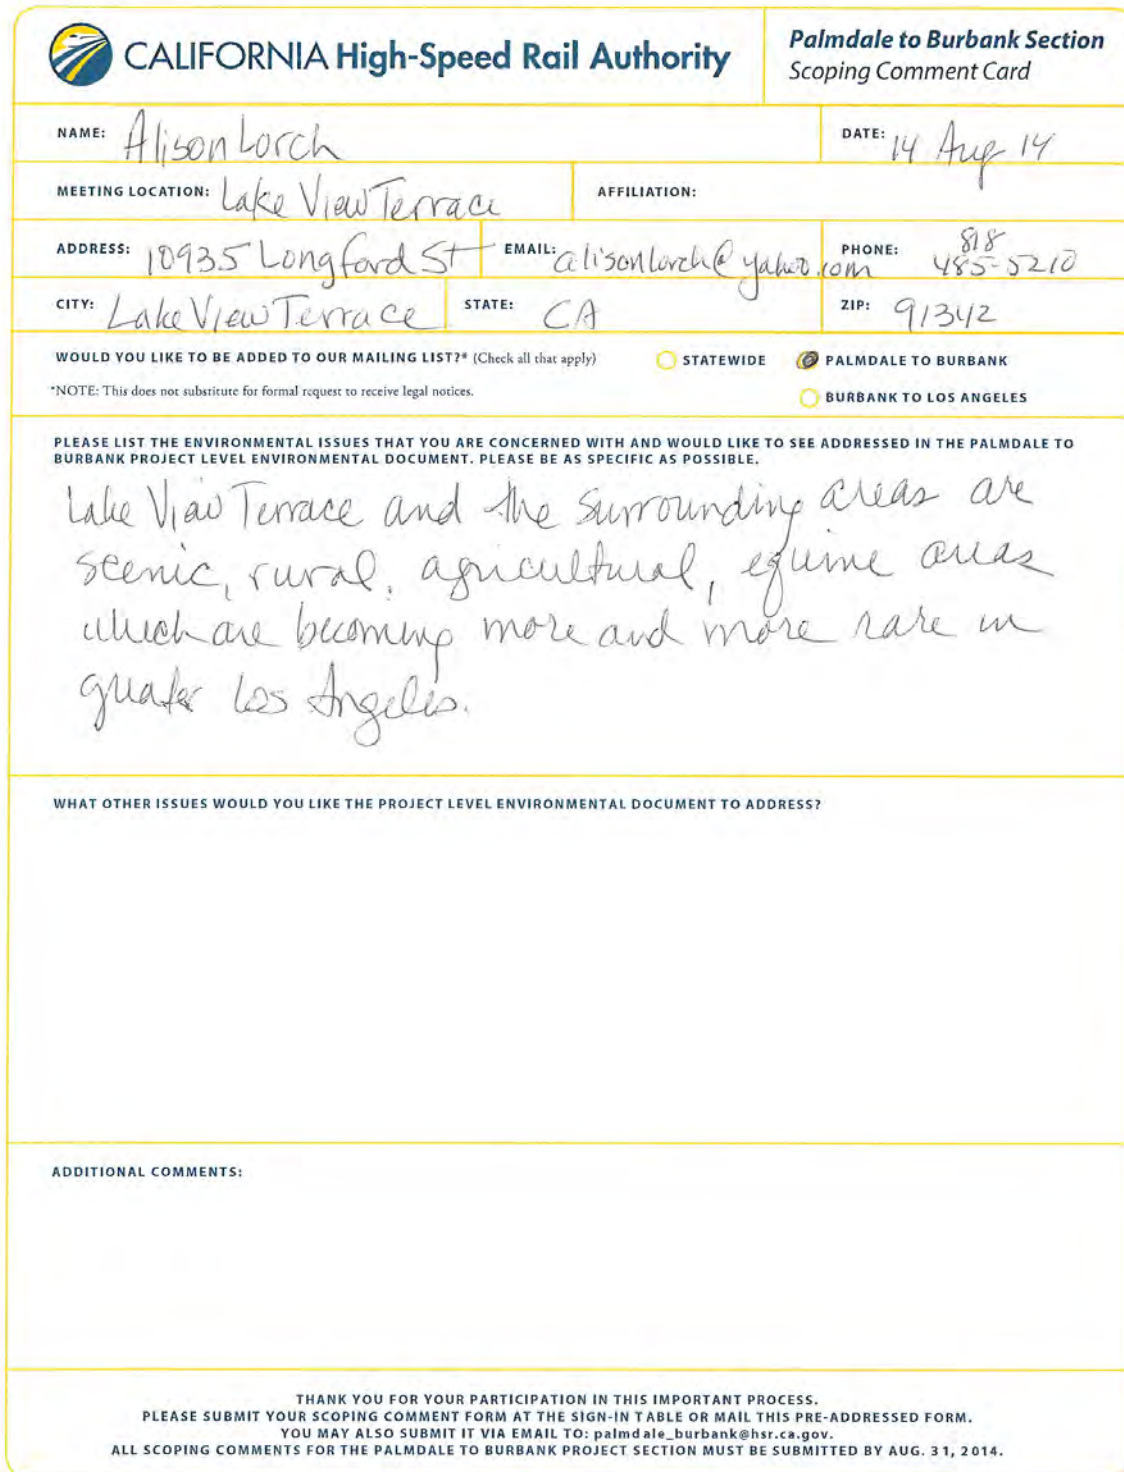 CALIFORNIA High-Speed Rail Authority
Palmdale to Burbank Section
Scoping Comment Card
NAME: Alison Lorch
DATE: 14 Aug 14
MEETING LOCATION: Lake View Terrace
AFFILIATION:
ADDRESS: 10935 Longford St
EMAIL: alisonlorch@yahoo.com
PHONE: 818
485-5210
CITY: Lake View Terrace
STATE: CA
ZIP: 91342
WOULD YOU LIKE TO BE ADDED TO OUR MAILING LIST?* (Check all that apply)
STATEWIDE
PALMDALE TO BURBANK
*NOTE: This does not substitute for formal request to receive legal notices.
BURBANK TO LOS ANGELES
PLEASE LIST THE ENVIRONMENTAL ISSUES THAT YOU ARE CONCERNED WITH AND WOULD LIKE TO SEE ADDRESSED IN THE PALMDALE TO
BURBANK PROJECT LEVEL ENVIRONMENTAL DOCUMENT. PLEASE BE AS SPECIFIC AS POSSIBLE.
Lake View Terrace and the surrounding areas are
scenic, rural, agricultural, equine areas
which are becoming more and more rare in
greater Los Angeles.
WHAT OTHER ISSUES WOULD YOU LIKE THE PROJECT LEVEL ENVIRONMENTAL DOCUMENT TO ADDRESS?
ADDITIONAL COMMENTS:
THANK YOU FOR YOUR PARTICIPATION IN THIS IMPORTANT PROCESS.
PLEASE SUBMIT YOUR SCOPING COMMENT FORM AT THE SIGN-IN TABLE OR MAIL THIS PRE-ADDRESSED FORM.
YOU MAY ALSO SUBMIT IT VIA EMAIL TO: palmdale_burbank@hsr.ca.gov.
ALL SCOPING COMMENTS FOR THE PALMDALE TO BURBANK PROJECT SECTION MUST BE SUBMITTED BY AUG. 31, 2014.